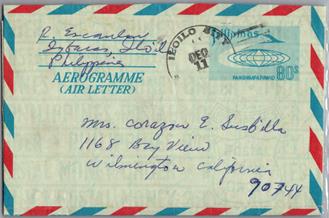 R. Escanlar
Iloilo
Philippines
AEROGRAMME
(AIR LETTER)
ILOILO CITY
DEC
11
Pilipinas
PANGHIMPAPAWID
80s
Mrs. Corazon E. Susbilla
1168 Bay View
Wilmington California
90744